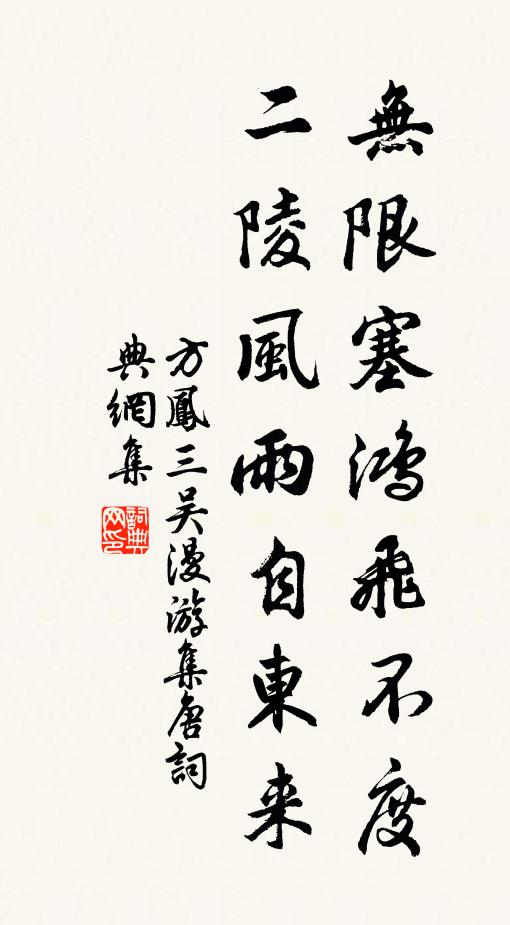 無限塞鴻飛不度
二陵風雨自東来
方鳳三吴漫游集唐詞
典網集
詞典网印